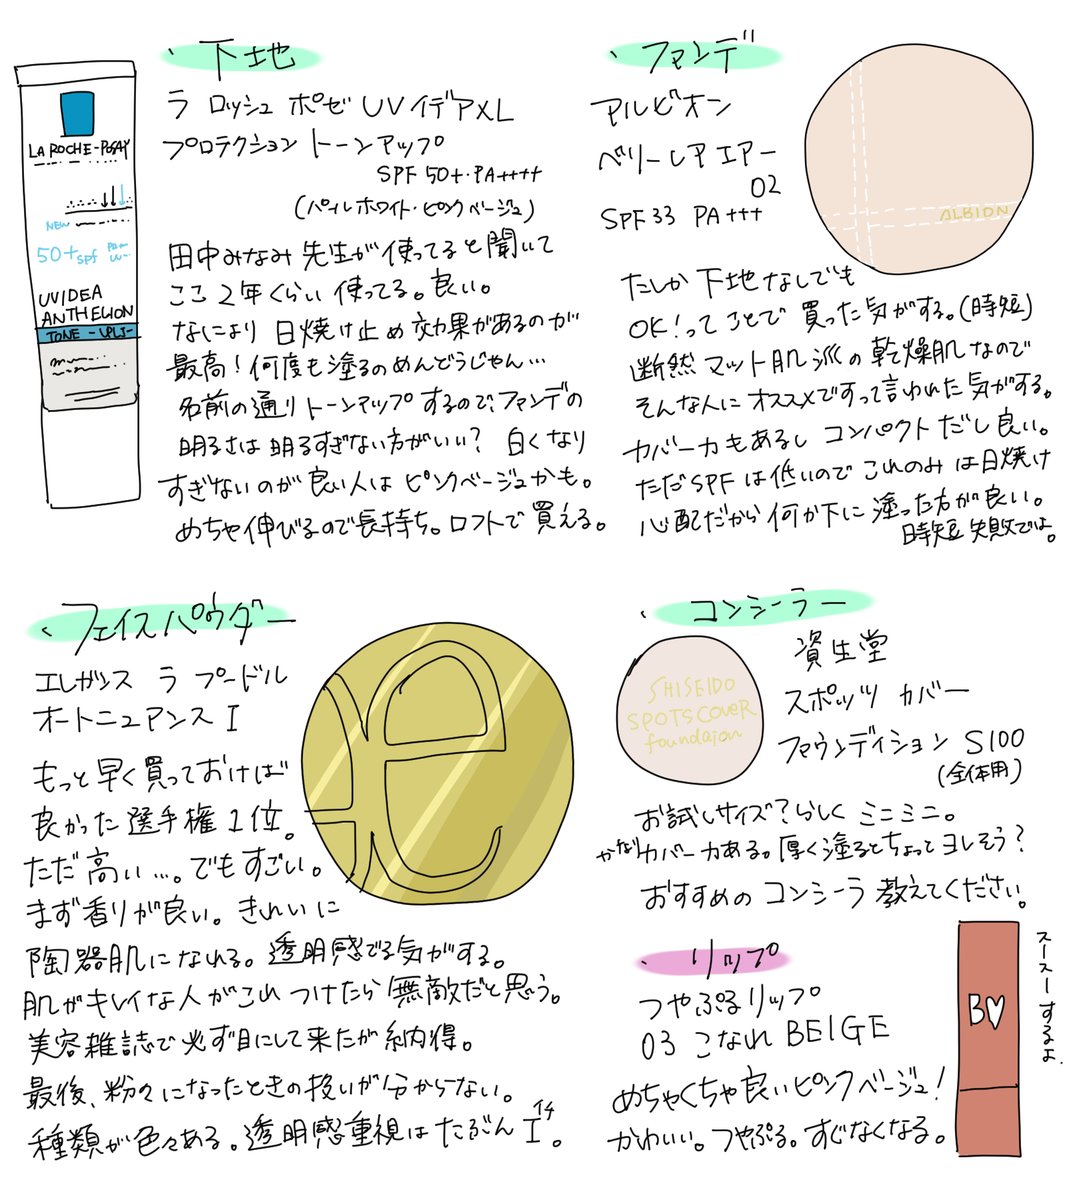 ・下地
ラ ロッシュ ポゼ UVイデアXL
プロテクション トーンアップ
SPF 50+・PA++++
(パールホワイト・ピンクベージュ)
田中みなみ先生が使ってると聞いて
ここ2年くらい使ってる。良い。
なにより日焼け止め効果があるのが
最高！何度も塗るのめんどうじゃん…
名前の通りトーンアップするので、ファンデの
明るさは明るすぎない方がいい？ 白くなり
すぎないのが良い人はピンクベージュかも。
めちゃ伸びるので長持ち。ロフトで買える。
LA ROCHE-POSAY
NEW
50+SPF
UVIDEA
ANTHELION
TONE -UPLI-
・ファンデ
アルビオン
ベリーレア エアー
02
SPF33 PA+++
ALBION
たしか下地なしでも
OK！ってことで買った気がする。(時短)
断然マット肌派の乾燥肌なので
そんな人にオススメですって言われた気がする。
カバー力もあるし コンパクトだし良い。
ただSPFは低いので これのみは日焼け
心配だから何か下に塗った方が良い。
時短失敗では。
・フェイスパウダー
エレガンス ラ プードル
オートニュアンス I
もっと早く買っておけば
良かった選手権1位。
ただ高い…。でもすごい。
まず香りが良い。きれいに
陶器肌になれる。透明感でる気がする。
肌がキレイな人がこれつけたら無敵だと思う。
美容雑誌で必ず目にして来たが納得。
最後、粉々になったときの扱いが分からない。
種類が色々ある。透明感重視はたぶんI。
イチ
・コンシーラー
資生堂
スポッツ カバー
ファウンデイション S100
(全体用)
SHISEIDO
SPOTSCOVER
foundaion
お試しサイズ？らしくミニミニ。
かなりカバー力ある。厚く塗るとちょっとヨレそう？
おすすめのコンシーラ教えてください。
・リップ
つやぷるリップ
03 こなれBEIGE
めちゃくちゃ良いピンクベージュ！
かわいい。つやぷる。すぐなくなる。
B♡
スースーするよ.